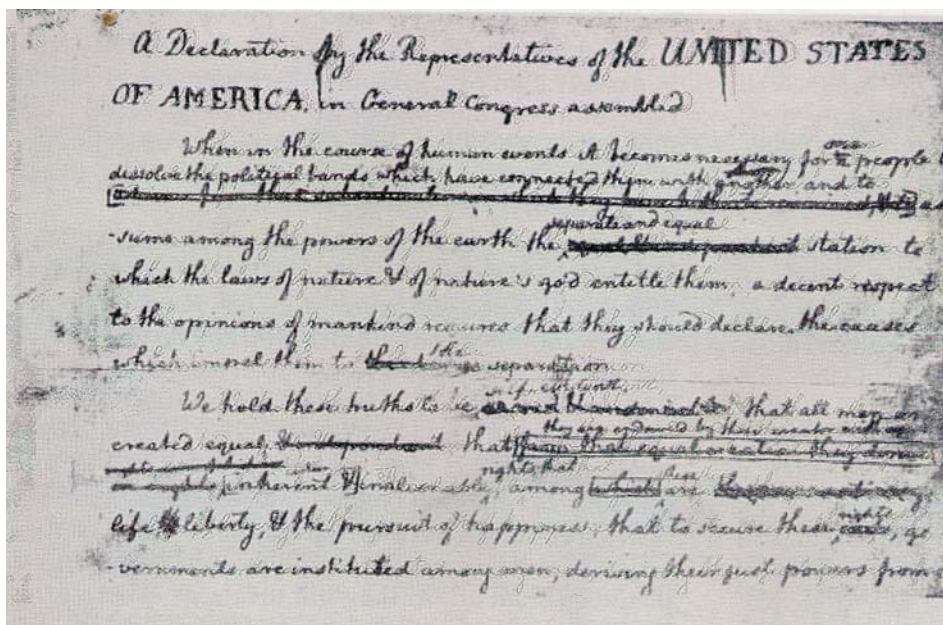 A Declaration by the Representatives of the UNITED STATES
OF AMERICA, in General Congress assembled
When in the course of human events it becomes necessary for one people
dissolve the political bands which have connected them with another and to
as
separate and equal
-sume among the powers of the earth the station to
which the laws of nature & of nature's god entitle them, a decent respect
to the opinions of mankind requires that they should declare the causes
which impel them to the separation
self evident
We hold these truths to be that all men are
they are endowed by their creator with
created equal that from that equal creation they derive
rights that
inherent & inalienable, among which are
life liberty, & the pursuit of happiness; that to secure these rights, go
-vernments are instituted among men, deriving their just powers from